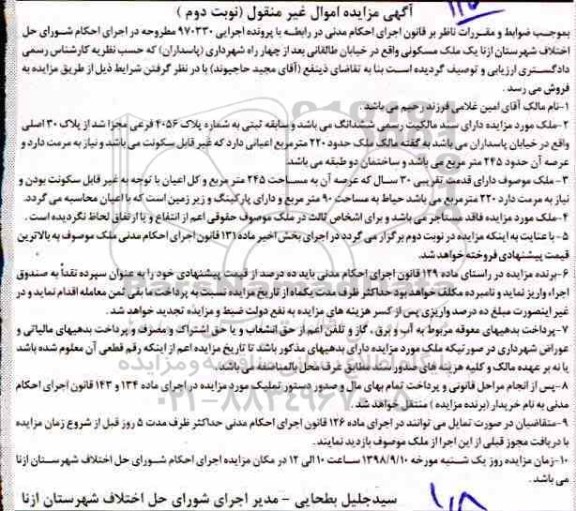 آگهی مزایده اموال غیر منقول (نوبت دوم)
بموجب ضوابط و مقررات ناظر بر قانون اجرای احکام مدنی در رابطه با پرونده اجرایی ۹۷۰۳۳۰ مطروحه در اجرای احکام شورای حل
اختلاف شهرستان ازنا یک ملک مسکونی واقع در خیابان طالقانی بعد از چهار راه شهرداری (پاسداران) که حسب نظریه کارشناس رسمی
دادگستری ارزیابی و توصیف گردیده است بنا به تقاضای ذینفع (آقای مجید حاجیوند) با در نظر گرفتن شرایط ذیل از طریق مزایده به
فروش می رسد .
۱-نام مالک آقای امین غلامی فرزند رحیم می باشد .
۲-ملک مورد مزایده دارای سند مالکیت رسمی ششدانگ می باشد و سابقه ثبتی به شماره پلاک ۴۰۵۶ فرعی مجزا شد از پلاک ۳۰ اصلی
واقع در خیابان پاسداران می باشد به گفته مالک ملک حدود ۲۲۰ مترمربع اعیانی دارد که غیر قابل سکونت می باشد و نیاز به مرمت دارد و
عرصه آن حدود ۲۴۵ متر مربع می باشد و ساختمان دو طبقه می باشد.
۳- ملک موصوف دارای قدمت تقریبی ۳۰ سال که عرصه آن به مساحت ۲۴۵ متر مربع و کل اعیان با توجه به غیر قابل سکونت بودن و
نیاز به مرمت دارد ۲۲۰ مترمربع می باشد حیاط به مساحت ۹۰ متر مربع و دارای پارکینگ و زیر زمین است که با اعیان محاسبه می گردد.
۴-ملک مورد مزایده فاقد مستاجر می باشد و برای اشخاص ثالث در ملک موصوف حقوقی اعم از انتفاع و یا ارتفاق لحاظ نگردیده است .
۵-با عنایت به اینکه مزایده در نوبت دوم برگزار می گردد در اجرای بخش اخیر ماده ۱۳۱ قانون اجرای احکام مدنی ملک موصوف به بالاترین
قیمت پیشنهادی فروخته خواهد شد.
۶-برنده مزایده در راستای ماده ۱۲۹ قانون اجرای احکام مدنی باید ده درصد از قیمت پیشنهادی خود را به عنوان سپرده نقداً به صندوق
اجراء واریز نماید و نامبرده مکلف خواهد بود حداکثر ظرف مدت یکماه از تاریخ مزایده نسبت به پرداخت مابقی ثمن معامله اقدام نماید و در
غیر اینصورت مبلغ ده درصد واریزی پس از کسر هزینه های مزایده به نفع دولت ضبط و مزایده تجدید خواهد شد .
۷-پرداخت بدهیهای معوقه مربوط به آب و برق ، گاز و تلفن اعم از حق انشعاب و یا حق اشتراک و مصرف و پرداخت بدهیهای مالیاتی و
عوارض شهرداری در صورتیکه ملک مورد مزایده دارای بدهیهای مذکور باشد تا تاریخ مزایده اعم از اینکه رقم قطعی آن معلوم شده باشد
یا نه بر عهده مالک و کلیه هزینه های صدور سند مطابق عرف محل بالمناصفه می باشد.
۸-پس از انجام مراحل قانونی و پرداخت تمام بهای مال و صدور دستور تملیک مورد مزایده در اجرای ماده ۱۳۴ و ۱۴۳ قانون اجرای احکام
مدنی به نام خریدار (برنده مزایده ) منتقل خواهد شد .
۹-متقاضیان در صورت تمایل می توانند در اجرای ماده ۱۲۶ قانون اجرای احکام مدنی حداکثر ظرف مدت ۵ روز قبل از شروع زمان مزایده
با دریافت مجوز قبلی از این اجرا از ملک موصوف بازدید نمایند.
۱۰-زمان مزایده روز یک شنبه مورخه ۱۳۹۸/۹/۱۰ ساعت ۱۰ الی ۱۲ در مکان مزایده اجرای احکام شورای حل اختلاف شهرستان ازنا
می باشد .
سیدجلیل بطحایی - مدیر اجرای شورای حل اختلاف شهرستان ازنا